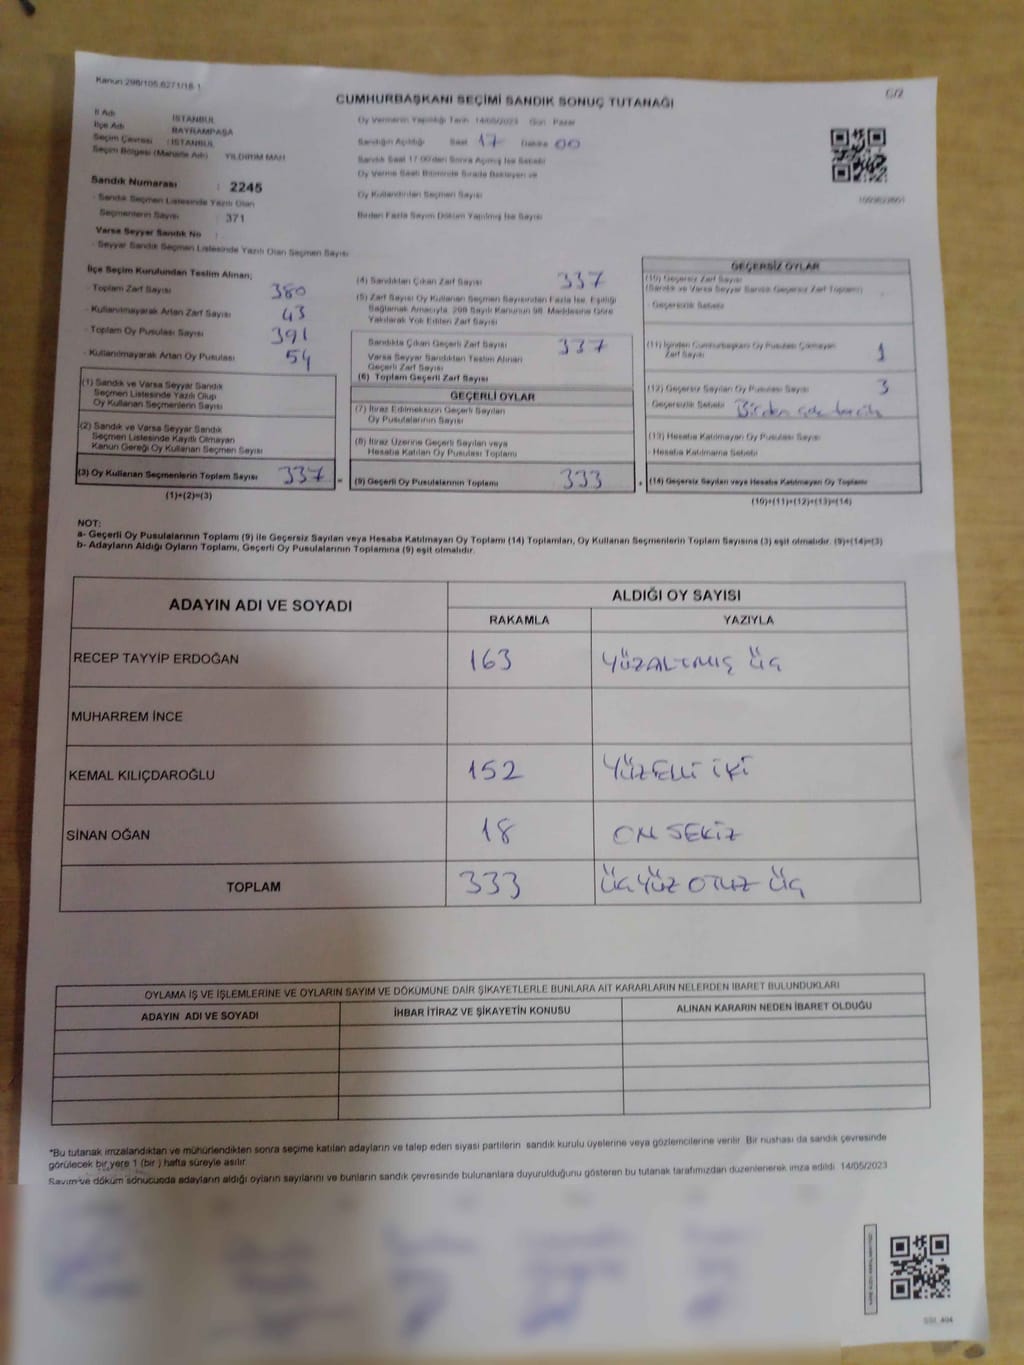 Kanun 298/105,6271/18 1
C/2
CUMHURBAŞKANI SEÇİMİ SANDIK SONUÇ TUTANAĞI
İl Adı : İSTANBUL
İlçe Adı : BAYRAMPAŞA
Seçim Çevresi : İSTANBUL
Seçim Bölgesi (Mahalle Adı) : YILDIRIM MAH
Sandık Numarası : 2245
- Sandık Seçmen Listesinde Yazılı Olan
Seçmenlerin Sayısı : 371
Varsa Seyyar Sandık No :
- Seyyar Sandık Seçmen Listesinde Yazılı Olan Seçmen Sayısı
Oy Vermenin Yapıldığı Tarih 14/05/2023 Gün Pazar
Sandığın Açıldığı Saat 17 Dakika 00
Sandık Saat 17:00'dan Sonra Açılmış İse Sebebi
Oy Verme Saati Bitiminde Sırada Bekleyen ve
Oy Kullandırılan Seçmen Sayısı
Birden Fazla Sayım Döküm Yapılmış İse Sayısı
İlçe Seçim Kurulundan Teslim Alınan;
- Toplam Zarf Sayısı 380
- Kullanılmayarak Artan Zarf Sayısı 43
- Toplam Oy Pusulası Sayısı 391
- Kullanılmayarak Artan Oy Pusulası 54
(1) Sandık ve Varsa Seyyar Sandık
Seçmen Listesinde Yazılı Olup
Oy Kullanan Seçmenlerin Sayısı
(2) Sandık ve Varsa Seyyar Sandık
Seçmen Listesinde Kayıtlı Olmayan
Kanun Gereği Oy Kullanan Seçmen Sayısı
(3) Oy Kullanan Seçmenlerin Toplam Sayısı 337 =
(1)+(2)=(3)
(4) Sandıktan Çıkan Zarf Sayısı 337
(5) Zarf Sayısı Oy Kullanan Seçmen Sayısından Fazla İse, Eşitliği
Sağlamak Amacıyla, 298 Sayılı Kanunun 98. Maddesine Göre
Yakılarak Yok Edilen Zarf Sayısı
Sandıkta Çıkan Geçerli Zarf Sayısı 337
Varsa Seyyar Sandıktan Teslim Alınan
Geçerli Zarf Sayısı
(6) Toplam Geçerli Zarf Sayısı
GEÇERLİ OYLAR
(7) İtiraz Edilmeksizin Geçerli Sayılan
Oy Pusulalarının Sayısı
(8) İtiraz Üzerine Geçerli Sayılan veya
Hesaba Katılan Oy Pusulası Toplamı
(9) Geçerli Oy Pusulalarının Toplamı 333 +
GEÇERSİZ OYLAR
(10) Geçersiz Zarf Sayısı
(Sandık ve Varsa Seyyar Sandık Geçersiz Zarf Toplamı)
- Geçersizlik Sebebi
(11) İçinden Cumhurbaşkanı Oy Pusulası Çıkmayan
Zarf Sayısı 1
(12) Geçersiz Sayılan Oy Pusulası Sayısı 3
Geçersizlik Sebebi Birden çok tercih
(13) Hesaba Katılmayan Oy Pusulası Sayısı
- Hesaba Katılmama Sebebi
(14) Geçersiz Sayılan veya Hesaba Katılmayan Oy Toplamı
(10)+(11)+(12)+(13)=(14)
NOT:
a- Geçerli Oy Pusulalarının Toplamı (9) ile Geçersiz Sayılan veya Hesaba Katılmayan Oy Toplamı (14) Toplamları, Oy Kullanan Seçmenlerin Toplam Sayısına (3) eşit olmalıdır. (9)+(14)=(3)
b- Adayların Aldığı Oyların Toplamı, Geçerli Oy Pusulalarının Toplamına (9) eşit olmalıdır.
ADAYIN ADI VE SOYADI ALDIĞI OY SAYISI
RAKAMLA YAZIYLA
RECEP TAYYİP ERDOĞAN 163 YÜZALTMIŞ ÜÇ
MUHARREM İNCE
KEMAL KILIÇDAROĞLU 152 YÜZELLİ İKİ
SİNAN OĞAN 18 ON SEKİZ
TOPLAM 333 ÜÇYÜZ OTUZ ÜÇ
OYLAMA İŞ VE İŞLEMLERİNE VE OYLARIN SAYIM VE DÖKÜMÜNE DAİR ŞİKAYETLERLE BUNLARA AİT KARARLARIN NELERDEN İBARET BULUNDUKLARI
ADAYIN ADI VE SOYADI İHBAR İTİRAZ VE ŞİKAYETİN KONUSU ALINAN KARARIN NEDEN İBARET OLDUĞU
*Bu tutanak imzalandıktan ve mühürlendikten sonra seçime katılan adayların ve talep eden siyasi partilerin sandık kurulu üyelerine veya gözlemcilerine verilir. Bir nushası da sandık çevresinde
görülecek bir yere 1 (bir ) hafta süreyle asılır.
Sayım ve döküm sonucunda adayların aldığı oyların sayılarını ve bunların sandık çevresinde bulunanlara duyurulduğunu gösteren bu tutanak tarafımızdan düzenlenerek imza edildi. 14/05/2023